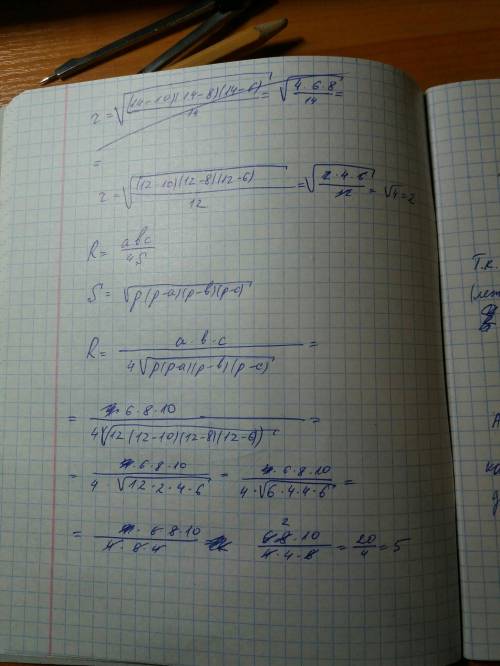 r = √((14-10)(14-8)(14-6)/14) = √(4·6·8/14) =
=
r = √((12-10)(12-8)(12-6)/12) = √(2·4·6/12) = √4 = 2
R = abc/4S
S = √p(p-a)(p-в)(p-c)
R = a·в·c/4√p(p-a)(p-в)(p-c) =
= 6·8·10/4√12(12-10)(12-8)(12-6) =
= 4·6·8·10/4·√12·2·4·6 = 4·6·8·10/4·√6·4·4·6 =
= 4·6·8·10/4·6·4 = 6·8·10/4·4·6 = 20/4 = 5
2
Т.к.